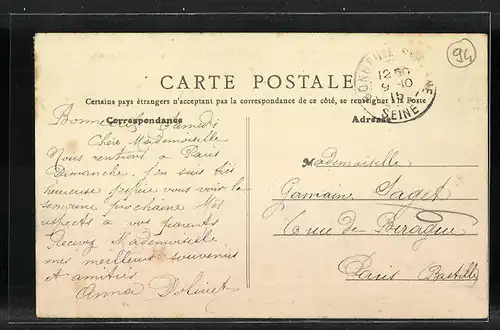 94
CARTE POSTALE
Certains pays étrangers n'acceptant pas la correspondance de ce côté, se renseigner à la Poste
Correspondance
Adresse
12
9-10
SEINE
Bonneuil Samedi
Chère Mademoiselle
Nous rentrons à Paris
Dimanche. J'en suis très
heureuse j'espère vous voir la
semaine prochaine Mes
respects a vos parents
Recevez Mademoiselle
mes meilleurs souvenirs
et amitiés
Anna Dolinet
Mademoiselle
Germaine Saget
6 rue de Birague
Paris Bastille